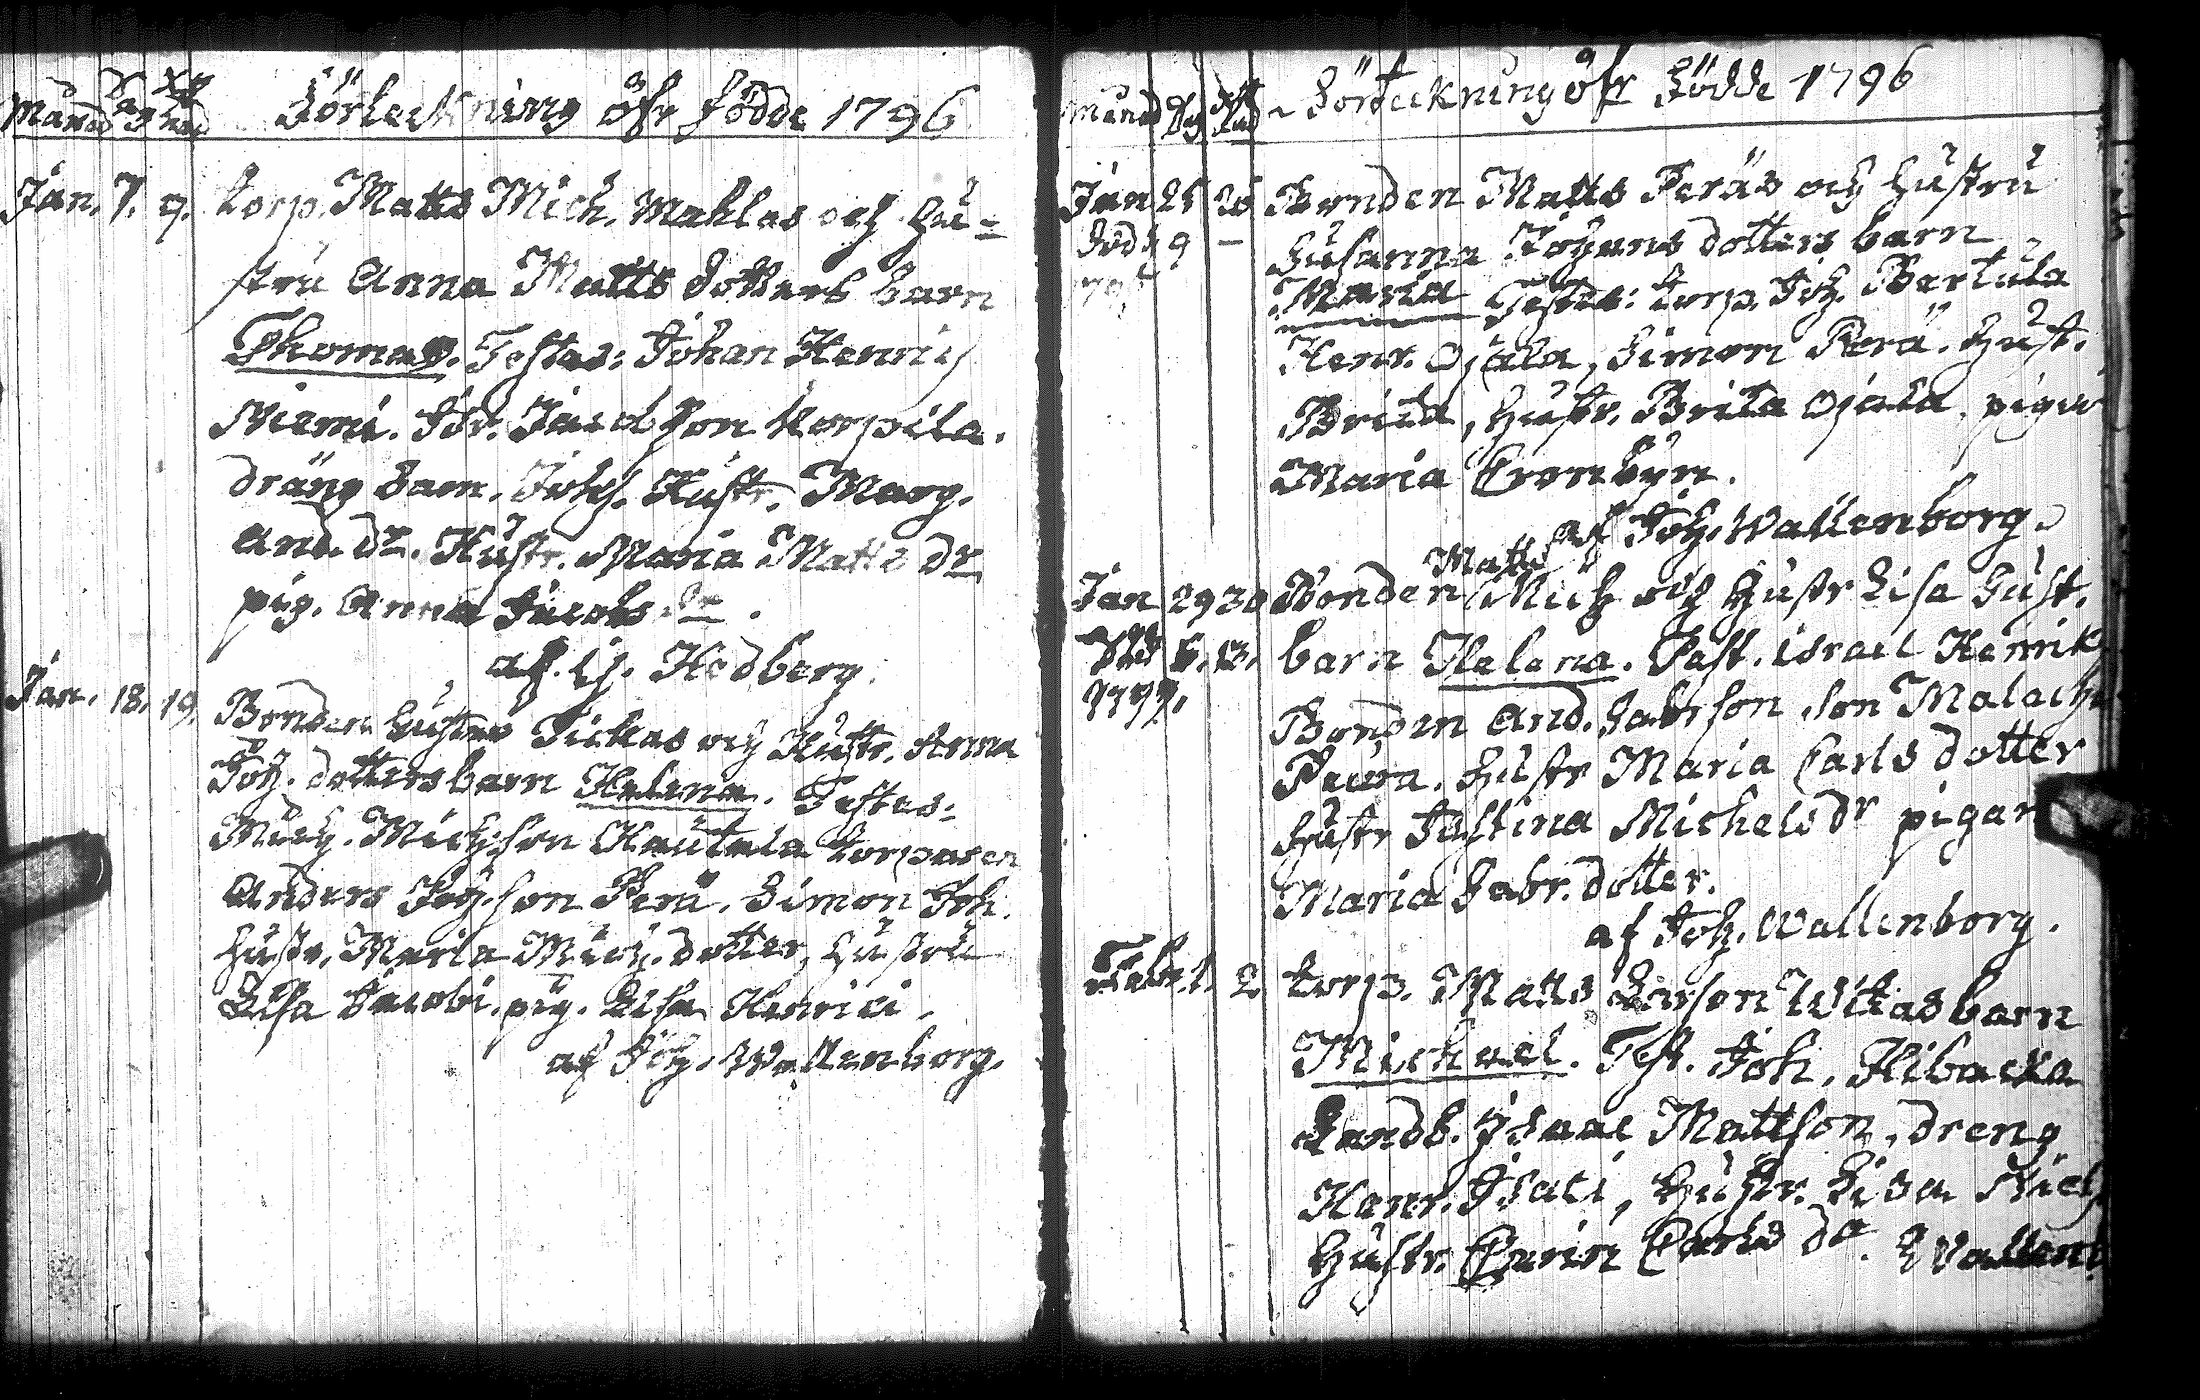 Månad Dag Xtnad Förteckning öfr födde 1796
Jan. 7. 9. torp. Matts Mich. Mahlas och Hu=
stru Anna Matts dotters barn
Thomas. Testes: Johan Henrich
Niemi. Joh. Jacobson Korpila.
dräng Sam. Johs. Hustr. Marg.
And. dr. Hustr. Maria Matts dr
pig. Anna Jacobs dr.
af Hedberg.
Jan. 18. 19. Bonden Gustav och Hustr. Anna
Joh. dotters barn Helena. Testes:
Mich. Michson Hautala torparen
Anders Joh.son Perä. Simon Joh.
Hustr. Maria Mich. dotter, Hustru
Lisa Jacobi. pig. Lisa Henrici.
af Joh. Wallenborg.
Månad Dag Förteckning öfr Födde 1796
Jan 25 26 Bonden Matts Peräs och Hustru
död 9 – Susanna Johans dotters barn
Maria Testes: torp. Joh. Bertula
Henr. Ojala, Simon Perä. Hust.
Brita, Hustr. Brita Ojala. pigan
Maria Cronbyn.
af Joh. Wallenborg.
Matts
Jan 29 30 Bonden Mich och Hustr Lisa Gust.
död 6. 13. barn Helena. Test. Israel Henrik
1799. Bonden And. Gabrson son
Paura. Hustr Maria Carls dotter
Hustr Justina Michels dr pigan
Maria Gabr. dotter.
af Joh. Wallenborg.
Febr. 1. 2 torp. Matts Witas barn
Michael. Test. Joh. Hibacka
Landb. Isaac Mattson, dreng
Henr. Isaci, Hustr. Lisa
Hustr. Carin Carls dr. Wallenb